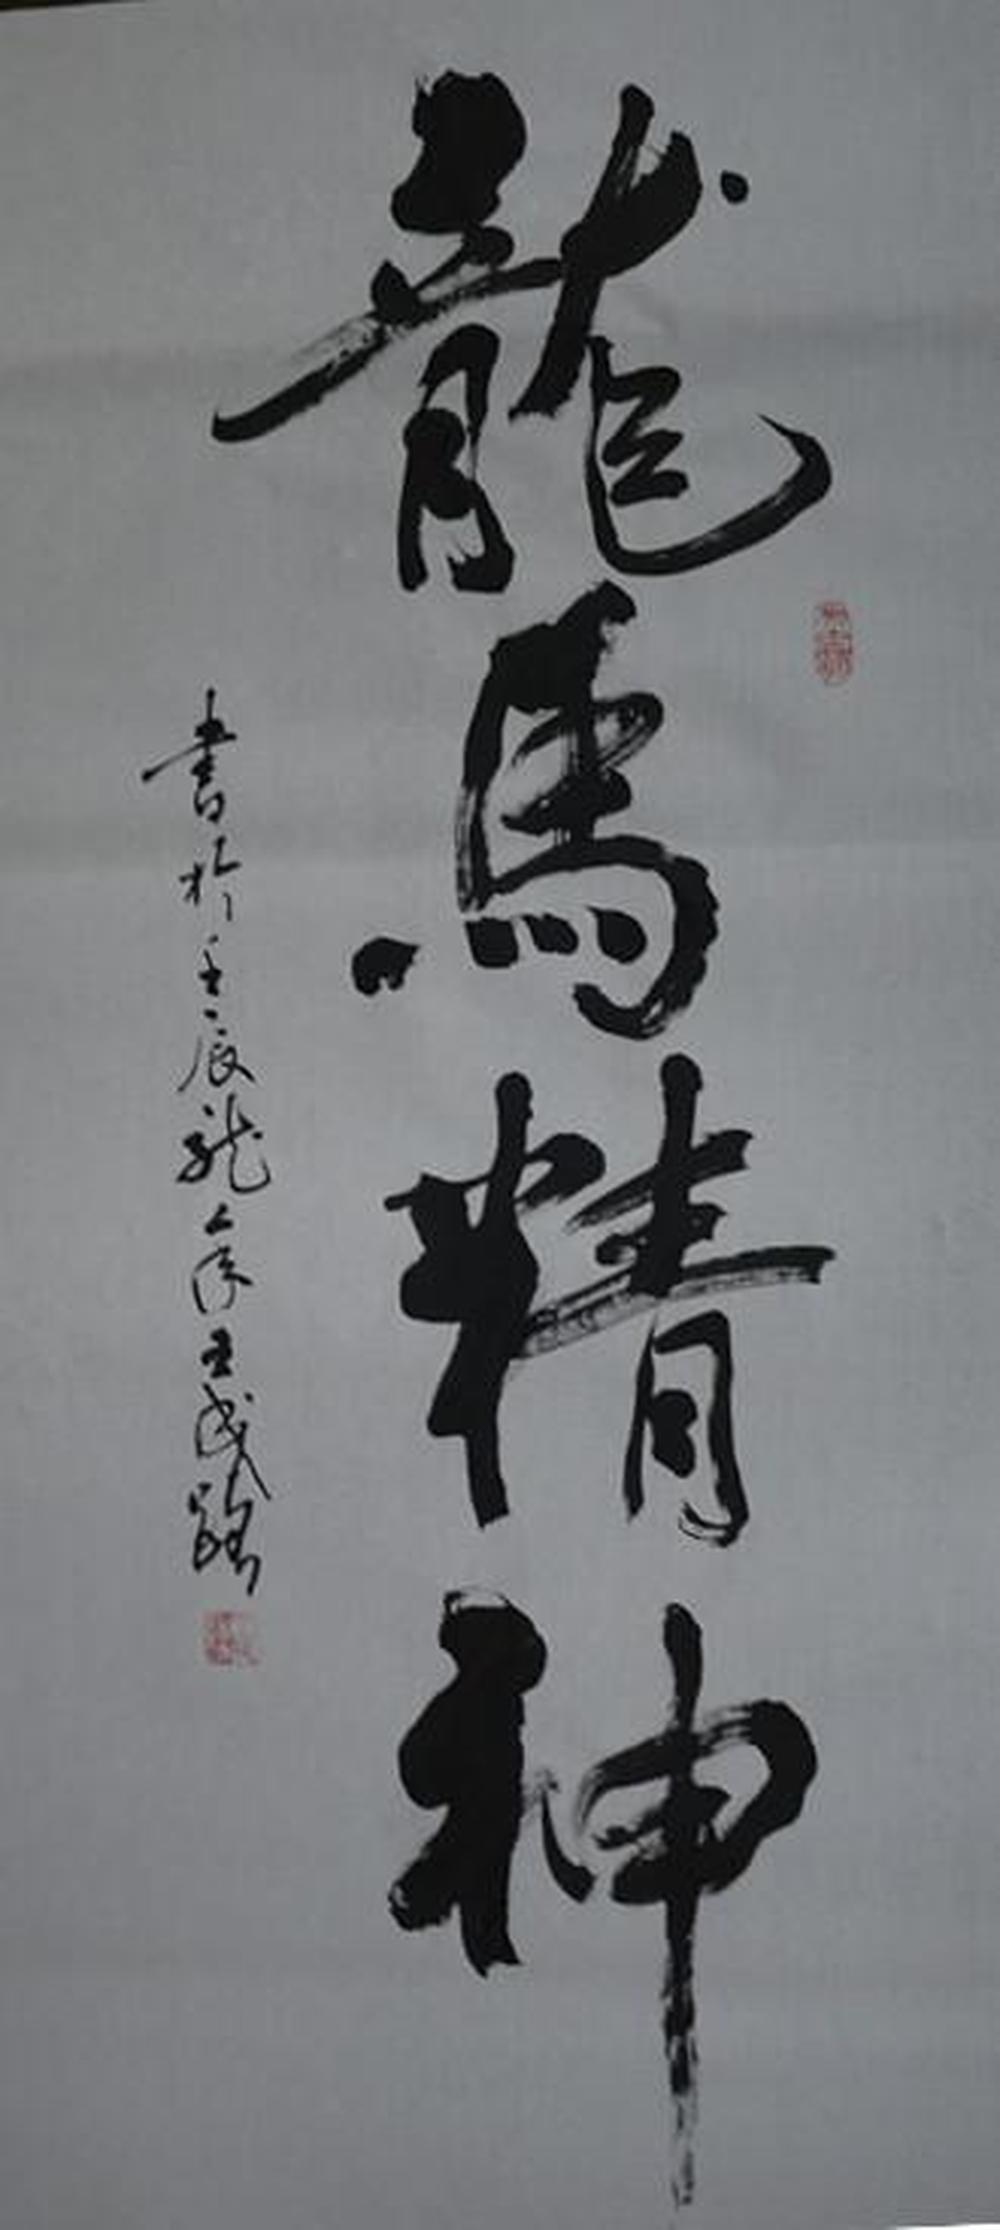 龍馬精神
書於壬辰龍年